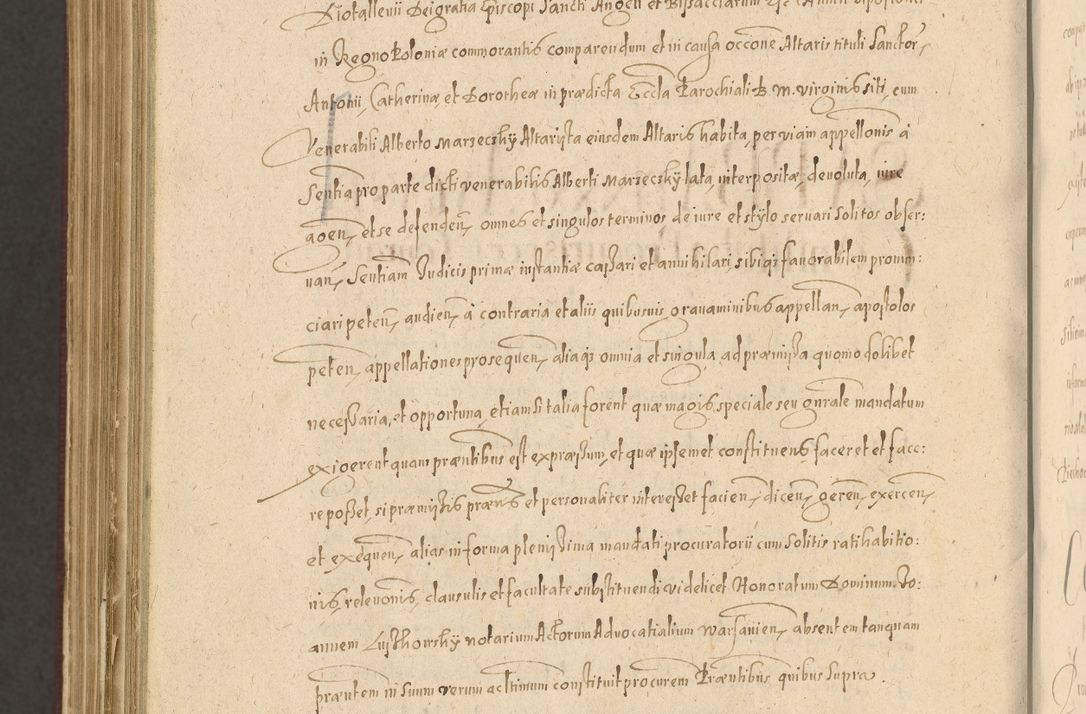 Diotallevii Dei gratia Episcopi Sancti Angeli et Bissacciarum
in Regno Poloniæ commorantis comparendum et in causa occone Altaris tituli Sanctor,
Antonii, Catherinæ, et Dorotheæ in prædicta Eccla Parochiali B. M. Virginis siti, cum
Venerabili Alberto Marzecsky Altarista eiusdem Altaris habita, per viam appellonis à
Sentia pro parte dicti venerabilis Alberti Marzecsky lata, interpositæ, devoluta, iure
agen, et se defenden, omnes et singulos terminos de iure et stylo servari solitos obser:
van, Sentiam Judicis primæ instantiæ cassari et annihilari sibiq; favorabilem pronun:
ciari peten, audien, à contraria et aliis quibusvis gravaminibus appellan, apostolos
peten, appellationes prosequen, aliaq; omnia et singula, ad præmissa quomodolibet
necessaria, et opportuna, etiam si talia forent quæ magis speciale seu gnrale mandatum
exigerent quam præntibus est expressum, et quæ ipsemet constituens faceret et face:
re posset, si præmissis præns et personaliter interesset facien, dicen, geren, exercen,
et exequen, alias in forma plenissima mandati procuratorii cum solitis ratihabitio:
nis, relevonis, clausulis et facultate substituendi videlicet Honoratum Dominum Jo:
annem Lusthowsky notarium Actorum Advocatialium Warsavien, absentem tanquam
præntem in Suum verum ac ltimum constituit procurem Præntibus quibus supra.